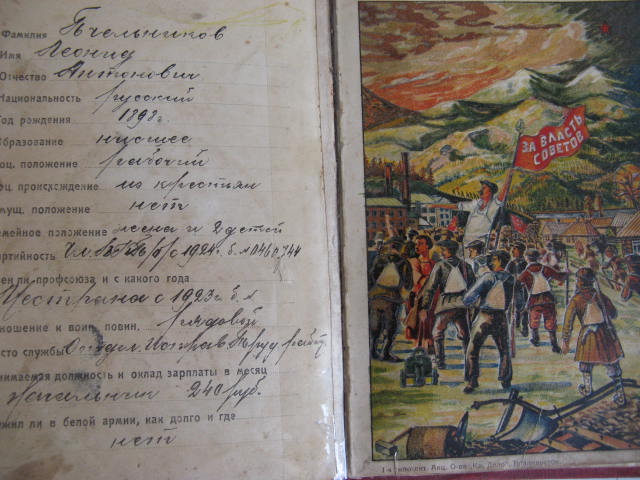 Фамилия Пчельников
Имя Леонид
Отчество Антонович
Национальность русский
Год рождения 1898 г.
Образование низшее
оц. положение рабочий
оц. происхождение из крестьян
мущ. положение нет
емейное положение жена и 2 детей
артийность с 1924 г. б. № 0460744
ен ли профсоюза и с какого года
с 1923 г. б. №
ношение к воин. повин. рядовой
сто службы
нимаемая должность и оклад зарплаты в месяц
Начальник 240 руб.
жил ли в белой армии, как долго и где
нет
ЗА ВЛАСТЬ
СОВЕТОВ